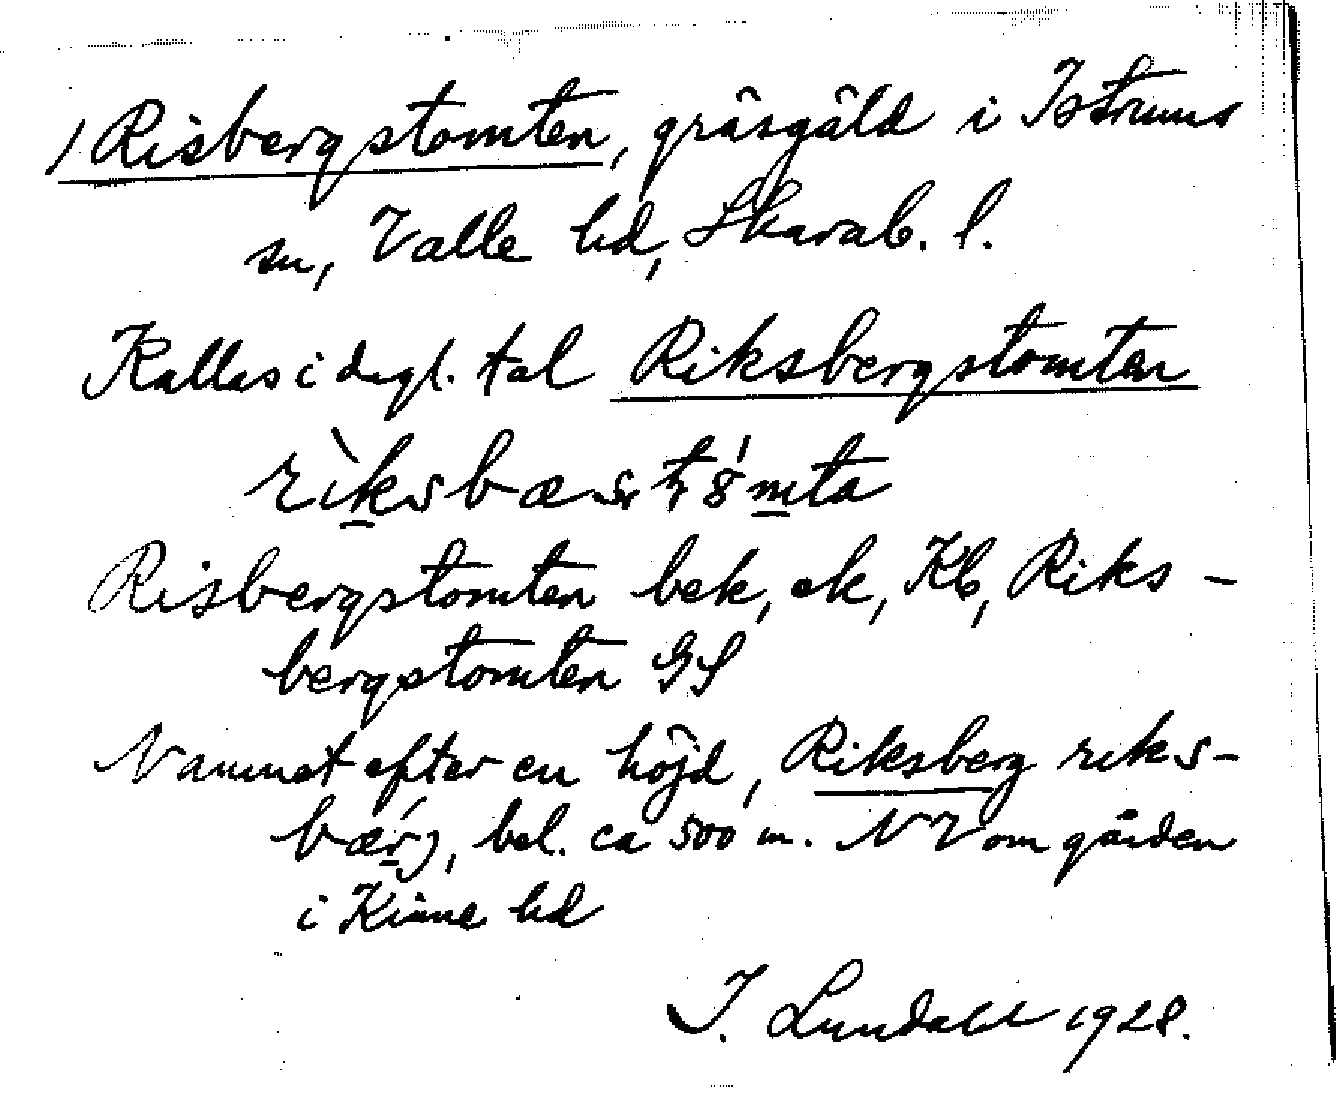 / Risbergstomten, gräsgäld i Istrums
sn, Valle hd, Skarab. l.
Kallas i dagl. tal Riksbergstomten
Risbergstomten bek, ek, Kb, Riks-
bergstomten GS
Namnet efter en höjd, Riksberg riks-
bærj, bel. ca 500 m. NV om gården
i Kinne hd
I. Lundahl 1928.